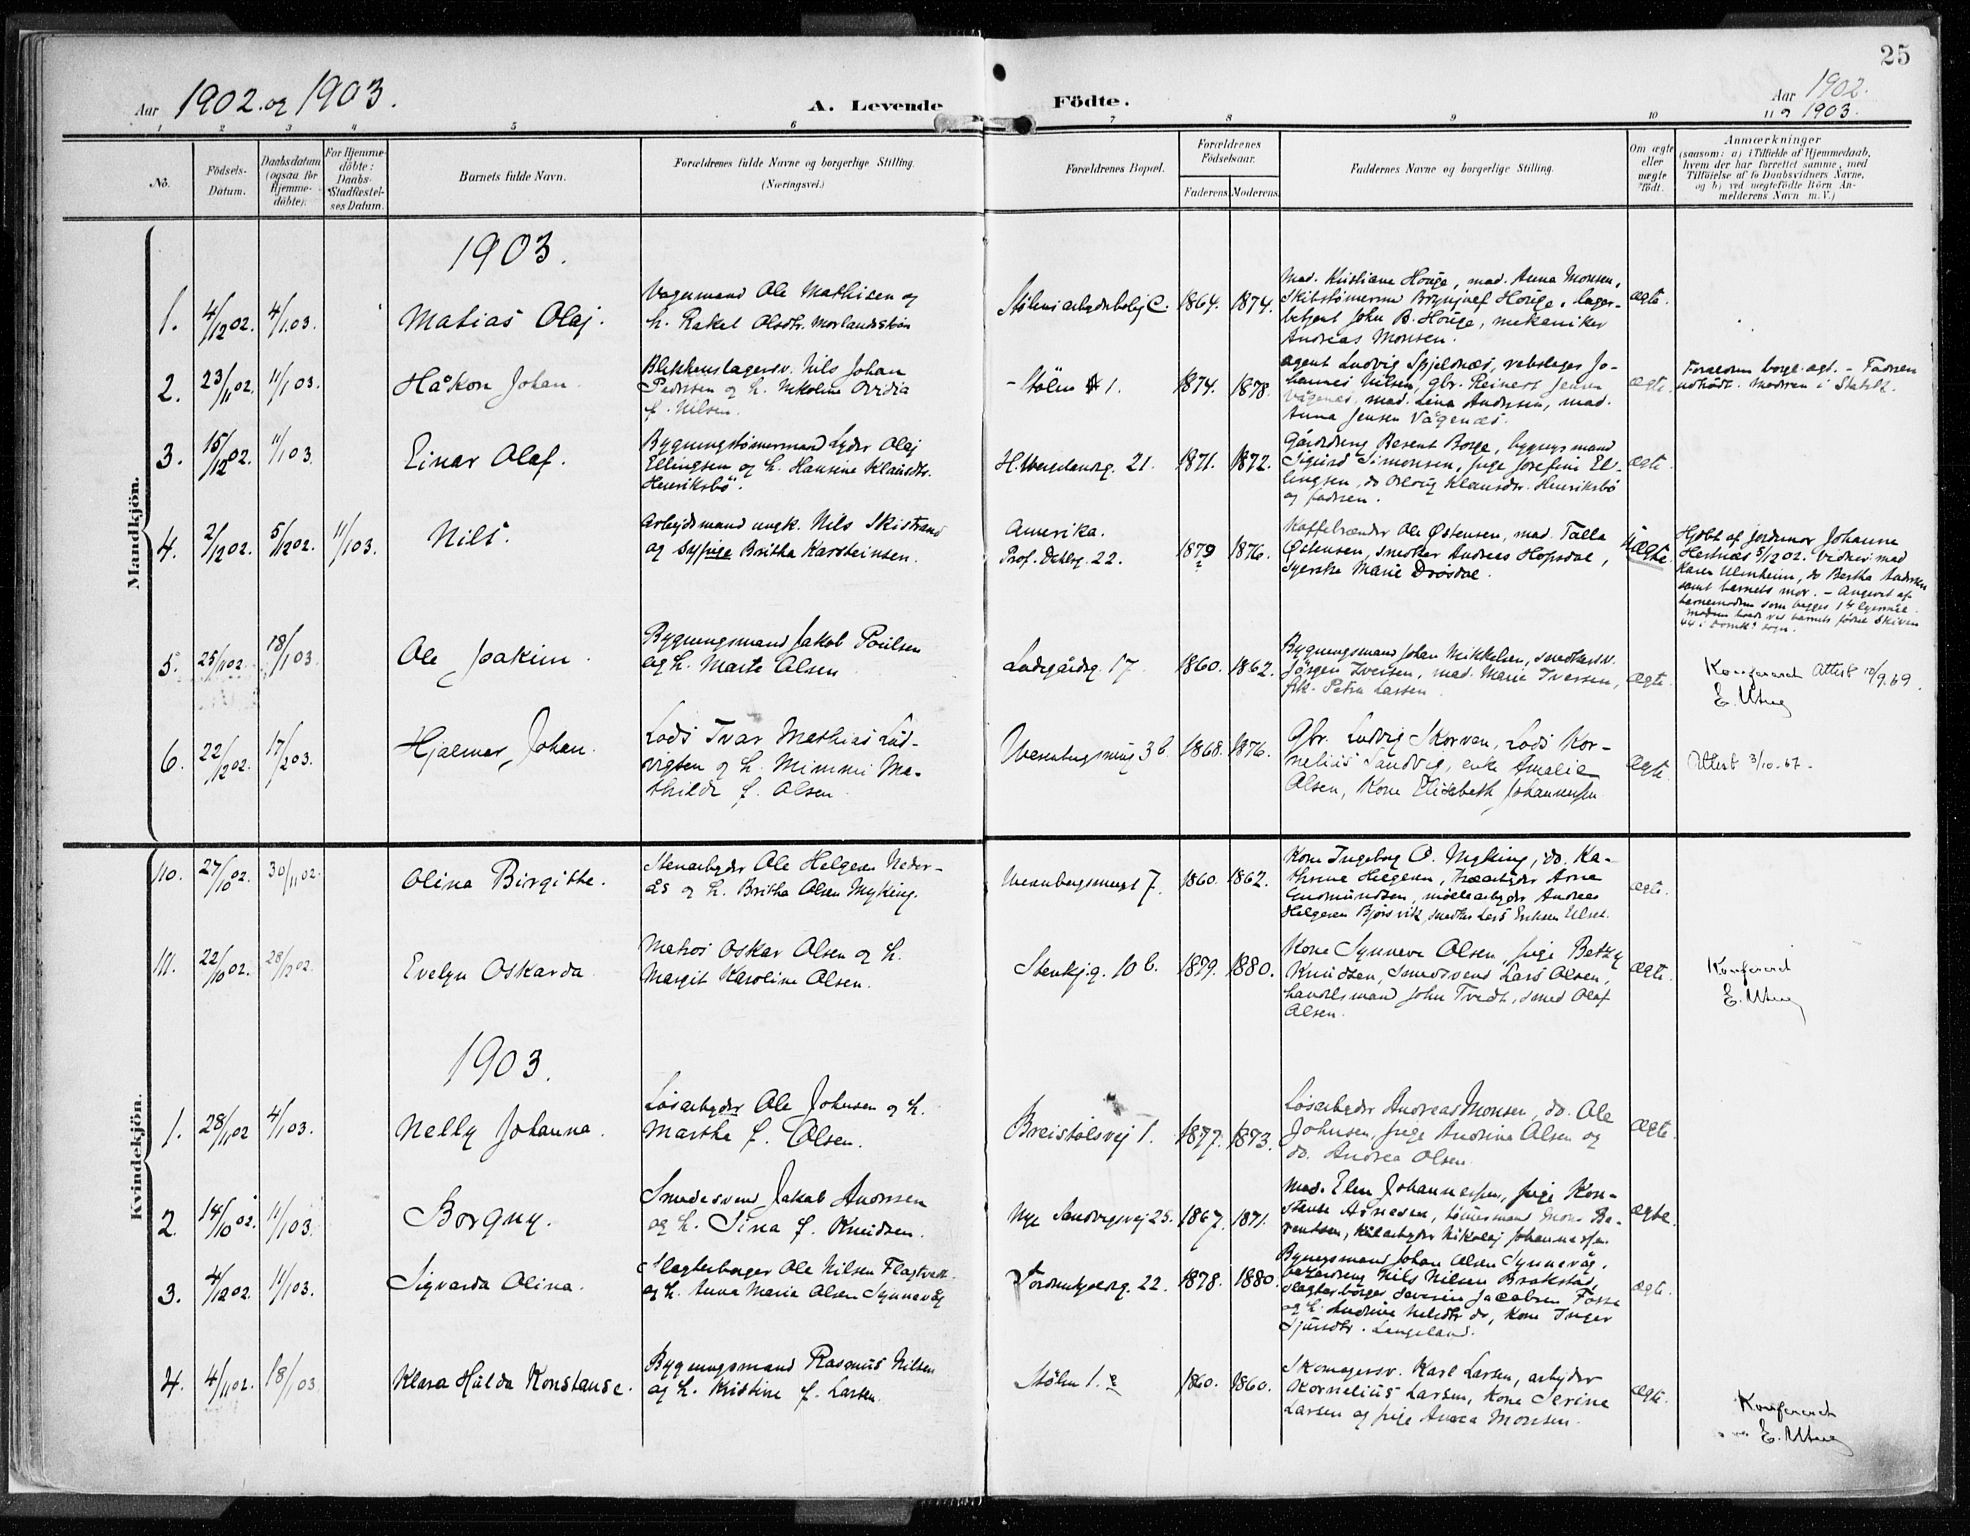 25
Aar 1902. og 1903.
A. Levende Födte.
Aar 1902.
og 1903.
1 2 3 4 5 6 7 8 9 10
No.
Födsels-
Datum.
Daabsdatum
(ogsaa for
Hjemme-
döbte).
For Hjemme-
döbte:
Daabs-
Stadfæstel-
ses Datum.
Barnets fulde Navn.
Forældrenes fulde Navne og borgerlige Stilling.
(Næringsvei.)
Forældrenes Bopæl.
Forældrenes
Födselsaar.
Faderens. Moderens.
Faddernes Navne og borgerlige Stilling.
Om ægte
eller
uægte
födt.
Anmærkninger
(saasom: a) i Tilfælde af Hjemmedaab,
hvem der har forrettet samme, med
Tilföielse af to Daabsvidners Navne,
og b) ved uægtefödte Börn An-
melderens Navn m. V.)
Mandkjön.
1903.
1. 4/12 02. 4/1 03. Matias Olaj.
Ole Mathisen og
h. Rakel Olsdtr.
1864. 1874.
Mad. Kristiane Houge, mad. Anna Monsen,
Houge, lager-
betjent John B. Houge, mekaniker
Andreas Monsen.
ægte.
2. 23/11 02. 11/1 03. Håkon Johan.
Blikkenslagersv. Nils Johan
Pedersen og h. Nikoline Ovidia
f. Nilsen.
Stölen 1.
1874. 1878.
Agent Ludvig Spjeldnæs, rebslager Jo-
hannes Nilsen, gbr. Reinert Jensen
Vågenæs, mad. Lina Andersen, mad.
Anna Jensen Vågenæs.
ægte.
3. 15/12 02. 11/1 03. Einar Olaf.
Bygningstömermand Lyder Olaj
Ellingsen og h. Hansine Klausdtr.
Henriksbö.
H. Wergelandsg. 21.
1871. 1872.
Gårddreng Berent Borge, bygningsmand
Sigurd Simonsen, pige Josefine El-
lingsen, do Klausdtr. Henriksbö
og faderen.
ægte.
4. 2/12 02. 5/12 02. 11/1 03. Nils.
Arbejdsmand ungk. Nils Skistrand
og sypige Britha Karsteinsen.
Amerika.
Prof. Dahlsg. 22.
1879 1876.
Kaffebrænder Ole Östensen, mad. Talla
Östensen, snedker Andreas Hopsdal,
syerske Marie Drösdal.
uægte.
Hjdbt af jordmor Johanne
Hestnæs 5/12 02. Vidner: mad
Karen Ulmheim, do Bertha Andersen
samt barnets mor. – Angivet af
barnemoderen som begges 1ste
5. 25/11 02. 18/1 03. Ole Joakim.
Bygningsmand Jakob Poulsen
og h. Marte Olsen
Ladegårdsg. 17
1860. 1862.
Bygningsmand Johan Mikkelsen, smedsv.
Jörgen Iversen, mad. Marie Iversen,
frk. Petra Larsen
ægte.
Konfereret Attest 10/9.69.
6. 22/12 02. 17/2 03. Hjalmar Johan.
Lods Ivar Mathias Lud-
vigsen og h. Mimmi Ma-
thilde f. Olsen.
3 b.
1868. 1876.
Gbr. Ludvig Skorven, Lods Kor-
nelius Sandvig, enke Amalie
Olsen, Kone Elisabeth Johannessen
ægte
Attest 3/10.67.
Kvindekjön.
110. 27/10 02. 30/11 02. Olina Birgithe.
Stenarbejder Ole Helgesen Neder-
ås og h. Britha Olsen Myking.
7.
1860. 1862.
Kone Ingeborg O. Myking, do. Ka-
thrine Helgesen, træarbejder Arne
Gudmundsen, möllearbejder Andreas
Helgesen Björsvik, smed Lars Eriksen
ægte.
111. 22/10 02. 28/12 02. Evelyn Oskarda.
Matros Oskar Olsen og h.
Margit Karoline Olsen.
Stenkjg. 10 b.
1879. 1880.
Kone Synneve Olsen, pige Betzy
Knudsen, smedsvend Lars Olsen,
handelsmand John Tvedt, smed Olaf
Olsen.
ægte.
Konfereret
1903.
1. 28/11 02 4/1 03. Nelly Johanna.
Lösarbejder Ole Johnsen og h.
Martha f. Olsen.
Breistölsvej 1.
1877. 1873.
Lösarbejder Andreas Monsen, do. Ole
Johnsen, pige Andrine Olsen og
do. Andrea Olsen.
ægte.
2. 14/10 02. 11/1 03. Borgny.
Smedesvend Jakob Andersen
og h. Sina f. Knudsen.
Nye Sandvigsvej 25.
1867. 1871.
Mad. Elen Johannessen, pige Kon-
stanse Arnesen, tömmermand Mons Be-
rentsen, Nikolaj Johannessen.
ægte.
3. 4/12 02. 11/1 03. Sigvarda Olina.
Slagterborger Ole Nilsen Flagtvedt
og h. Anna Marie Olsen Synnevåg
22.
1878. 1880.
Bygningsmand Johan Olsen Synnevåg,
Nils Nilsen Brakstad,
slagterborger Severin Jacobsen Fosse
og h. Andrine Nilsdtr do, Kone Inger
Sjursdtr. Langeland.
ægte.
4. 4/11 02. 18/1 03. Klara Hulda Konstanse.
Bygningsmand Rasmus Nilsen
og h. Kristine f. Larsen
Stölen 1.
1860. 1860.
Skomagersv. Karl Larsen, arbejder
Kornelius Larsen, Kone Serine
Larsen og pige Anna Monsen.
ægte.
Konfereret